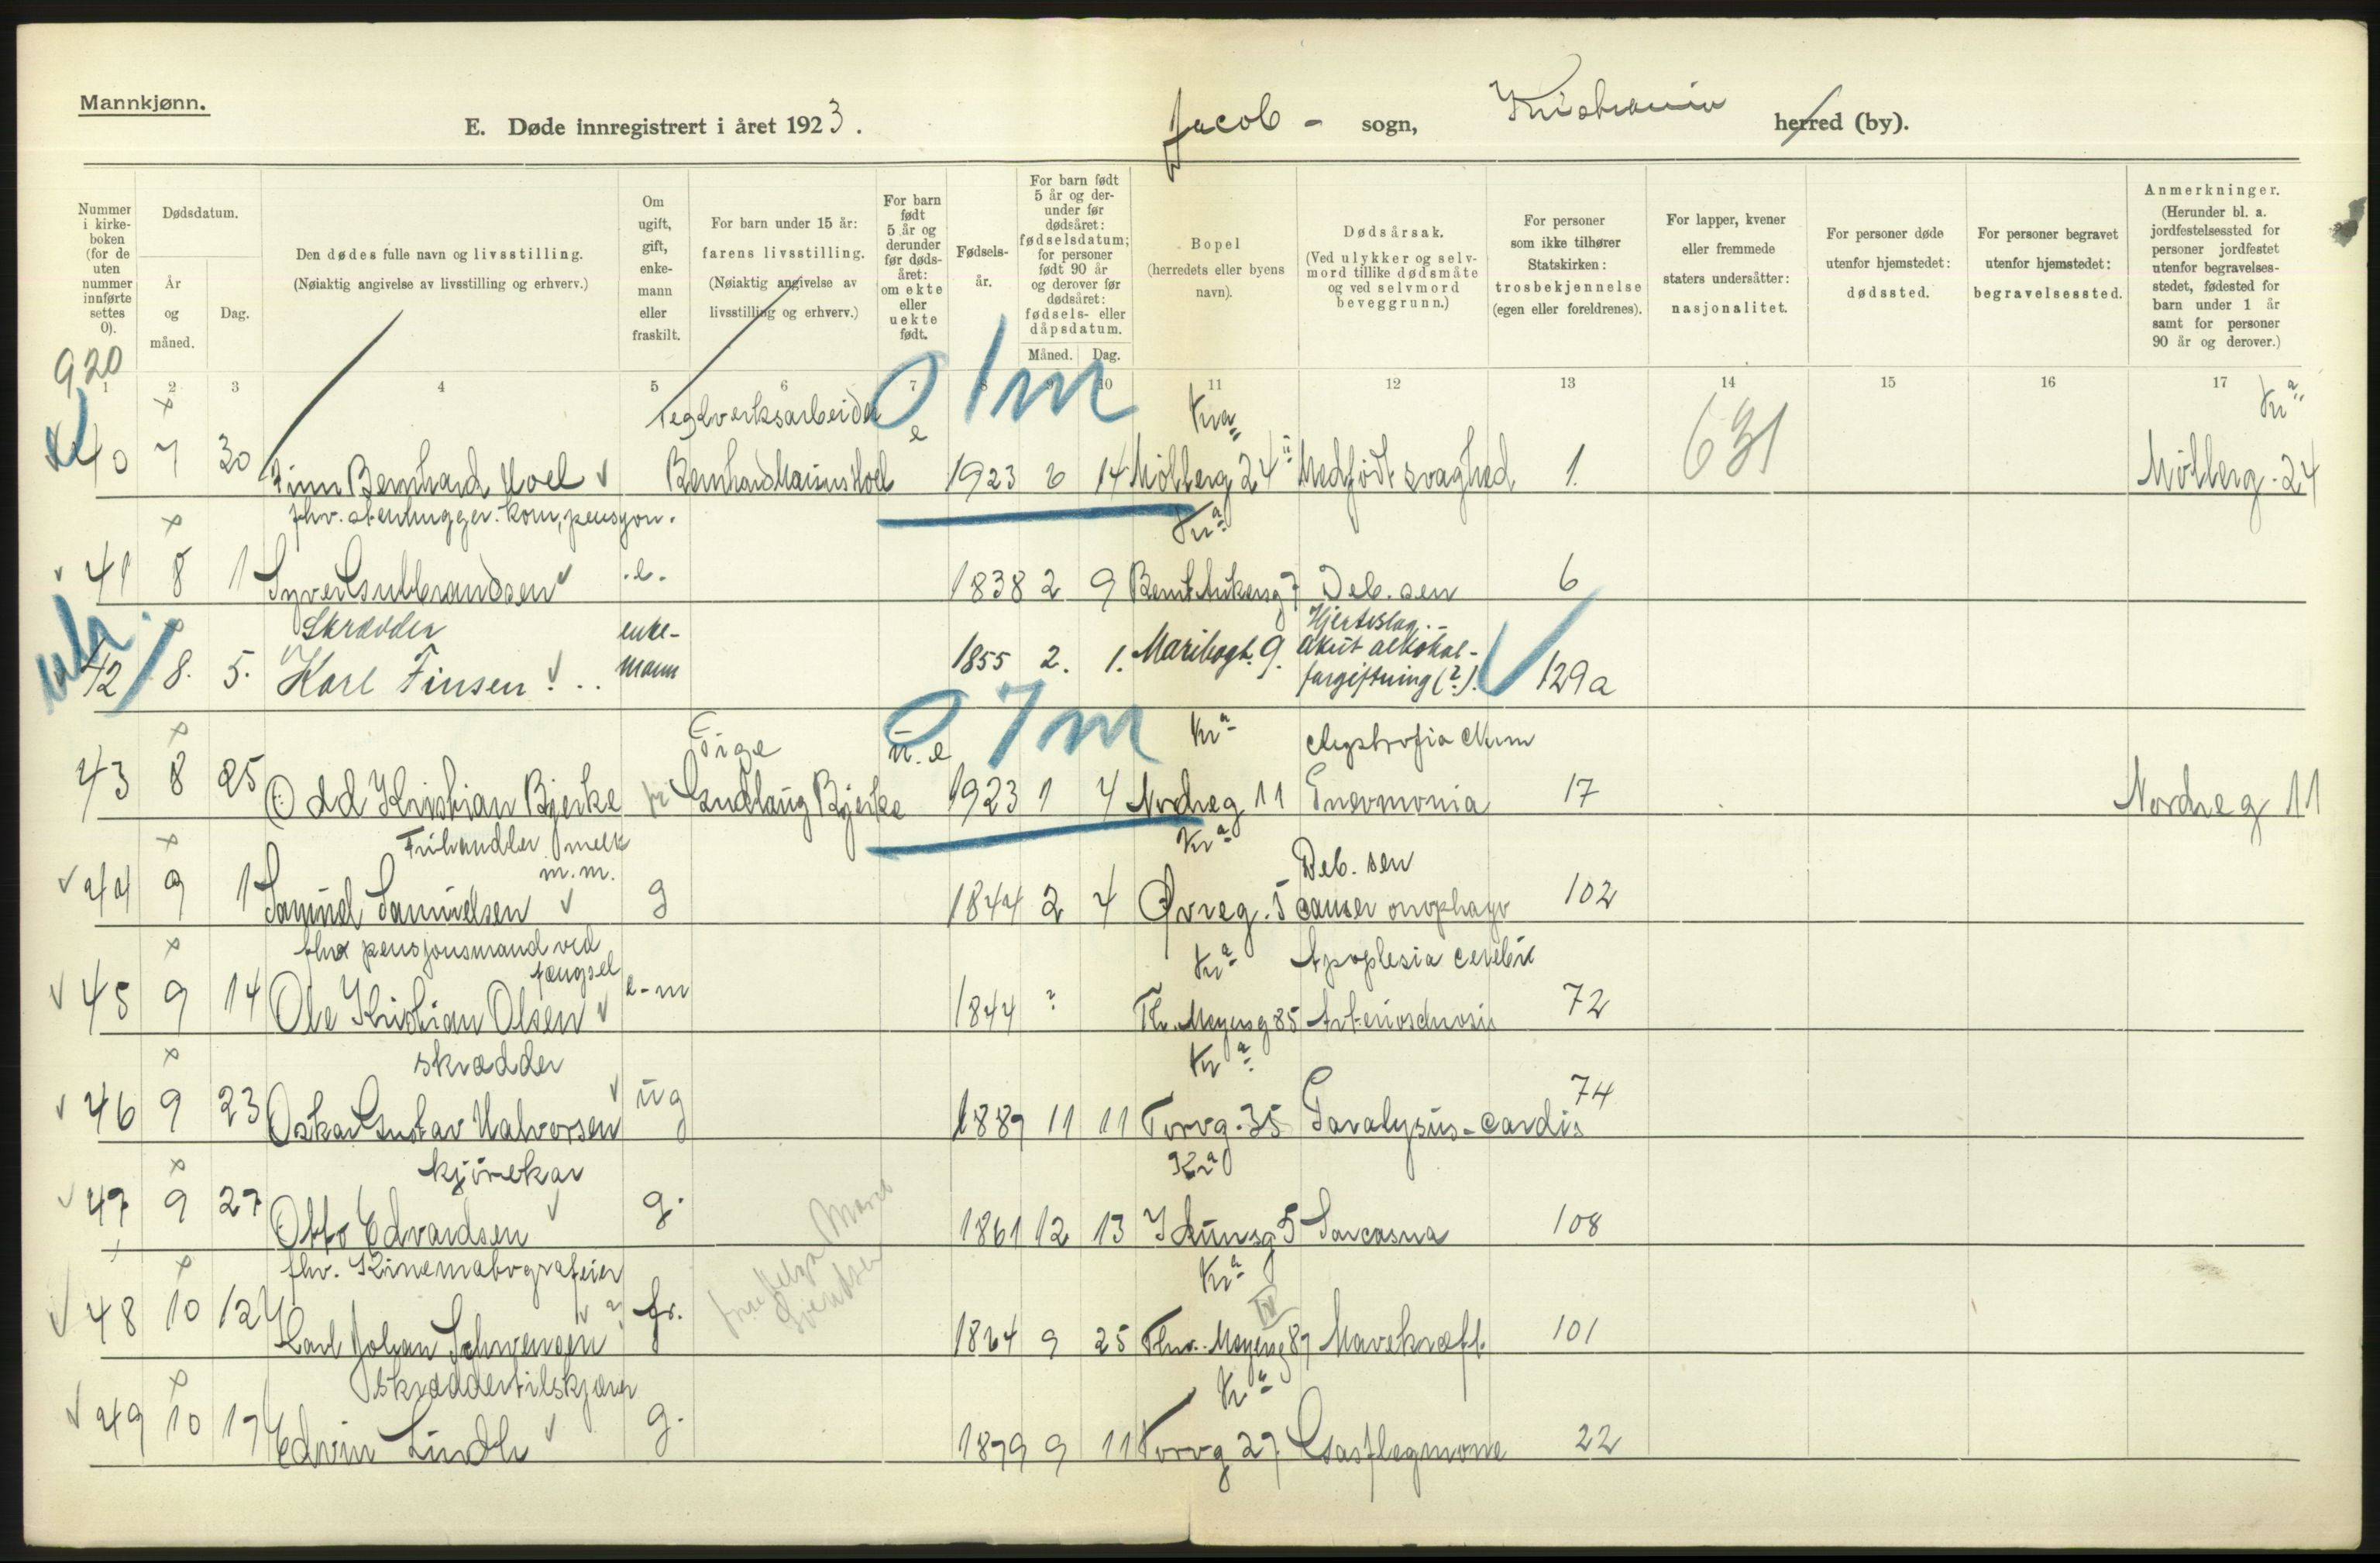 Mannkjønn.
E. Døde innregistrert i året 1923.
Jacob - sogn, Kristiania herred (by).
Nummer i kirkeboken (for de uten nummer innførte settes 0).
Dødsdatum.
År og måned.
Dag.
Den dødes fulle navn og livsstilling.
(Nøiaktig angivelse av livsstilling og erhverv.)
Om ugift, gift, enkemann eller fraskilt.
For barn under 15 år: farens livsstilling.
(Nøiaktig angivelse av livsstilling og erhverv.)
For barn født 5 år og derunder før dødsåret: om ekte eller uekte født.
Fødselsår.
For barn født 5 år og derunder før dødsåret: fødselsdatum; for personer født 90 år og derover før dødsåret: fødsels- eller dåpsdatum.
Måned. Dag.
Bopel (herredets eller byens navn).
Dødsårsak. (Ved ulykker og selvmord tillike dødsmåte og ved selvmord beveggrunn.)
For personer som ikke tilhører Statskirken: trosbekjennelse (egen eller foreldrenes).
For lapper, kvener eller fremmede staters undersåtter: nasjonalitet.
For personer døde utenfor hjemstedet: dødssted.
For personer begravet utenfor hjemstedet: begravelsessted.
Anmerkninger.
(Herunder bl. a. jordfestelsessted for personer jordfestet utenfor begravelsesstedet, fødested for barn under 1 år samt for personer 90 år og derover.)
920
1 2 3 4 5 6 7 8 9 10 11 12 13 14 15 16 17
Teglverksarbeider 0 1m Kra Kra
40 7 30 Finn Bernhard Hoel Bernhard Marius Hoel e 1923 6 14 Møllerg 24 Medfødt svaghed 1 631 Møllerg. 24
fhv. stenhugger. kom. pensjon. Kra
41 8 1 Syver Gulbrandsen .e. 1838 2 9 Bernt Ankersg 7 Deb. sen 6
Skrædder enke- Hjerteslag.
42 8. 5. Karl Finsen mann 1855 2. 1. Maribogt. 9. akut alkohol-
forgiftning (?). 129a
Pige u.e 0 7m Kra
43 8 25 Odd Kristian Bjerke Gudlaug Bjerke 1923 1 4 Nordreg 11 Pneumonia 17 Nordreg 11
Frihandler melk m.m. Kra Deb. sen
44 9 1 Samuel Samuelsen g 1844 2 4 Øvreg. 5 cancer 102
fhv pensjonsmand ved fængsel Kra Apoplexia cerebri
45 9 14 Ole Kristian Olsen e-m 1844 ? Th. Meyersg 85 72
skrædder Kra
46 9 23 Oskar Gustav Halvorsen ug 1889 11 11 Torvg. 35 Paralysus-cardis 74
kjørekar Kra
47 9 27 Otto Edvardsen g. 1861 12 13 5 Sarcoma 108
fhv. Kinematografeier Kra
48 10 12 Karl Johan fr. 1864 9 25 Thv. Meyersg 87 Mavekræft 101
Skræddertilskjærer Kra
49 10 17 Edvin Lindh g. 1879 9 11 Torvg 27 Gasflegmone 22